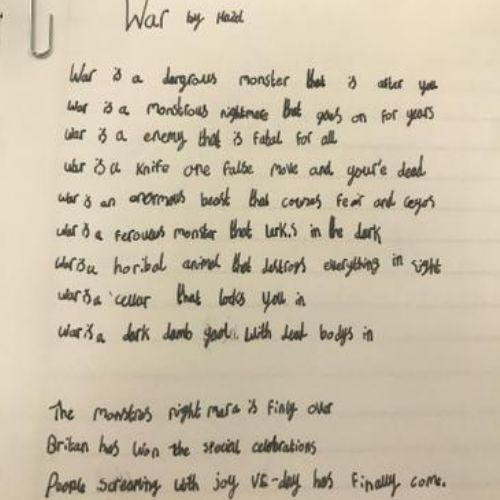 War by Hazel
War is a dangrous monster that is after you
War is a monstrous nightmere that goes on for years
war is a enemy that is fatal for all
war is a knife one false move and your'e dead
war is an enormous beast that couses fear and
war is a feroucus monster that lurk.s in the dark
war is a horibal animal that destroys everything in sight
war is a cellar that locks you in
war is a dark damb with dead bodys in
The monstras night mare is finly over
Britan has won the special celebrations
People screaming with joy VE-day has finally come.